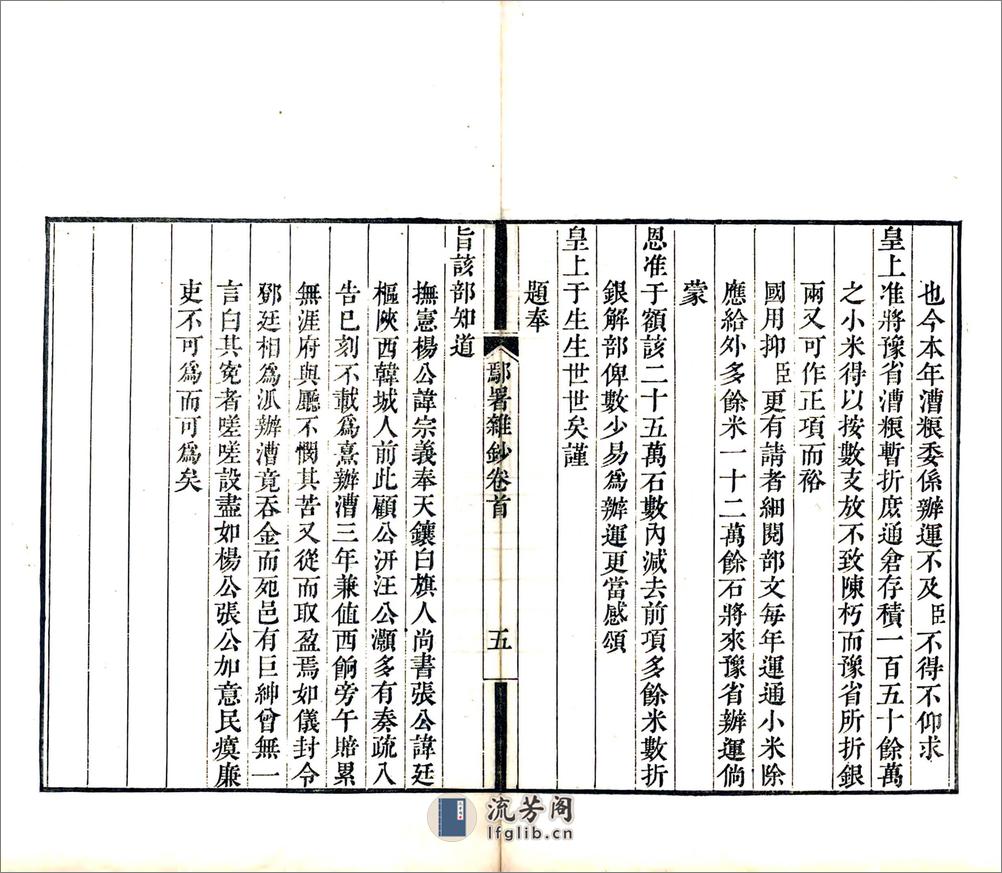 也今本年漕粮委係辦運不及臣不得不仰求
皇上准將豫省漕粮暫折庶通倉存積一百五十餘萬
之小米得以按數支放不致陳朽而豫省所折銀
兩又可作正項而裕
國用抑臣更有請者細閱部文每年運通小米除
應給外多餘米一十二萬餘石將來豫省辦運倘
蒙
恩准于額該二十五萬石數內減去前項多餘米數折
銀解部俾數少易爲辦運更當感頌
皇上于生生世世矣謹
題奉
鄢署雜鈔卷首
五
旨該部知道
撫憲楊公諱宗義奉天鑲白旗人尚書張公諱廷
樞陝西韓城人前此顧公汧汪公灝多有奏疏入
告巳刻不載爲熹辦漕三年兼值西餉旁午賠累
無涯府與廳不憫其苦又從而取盈焉如儀封令
鄧廷相爲派辦漕竟吞金而死邑有巨紳曾無一
言白其寃者嗟嗟設盡如楊公張公加意民瘼廉
吏不可爲而可爲矣
流芳阁
lfglib.cn